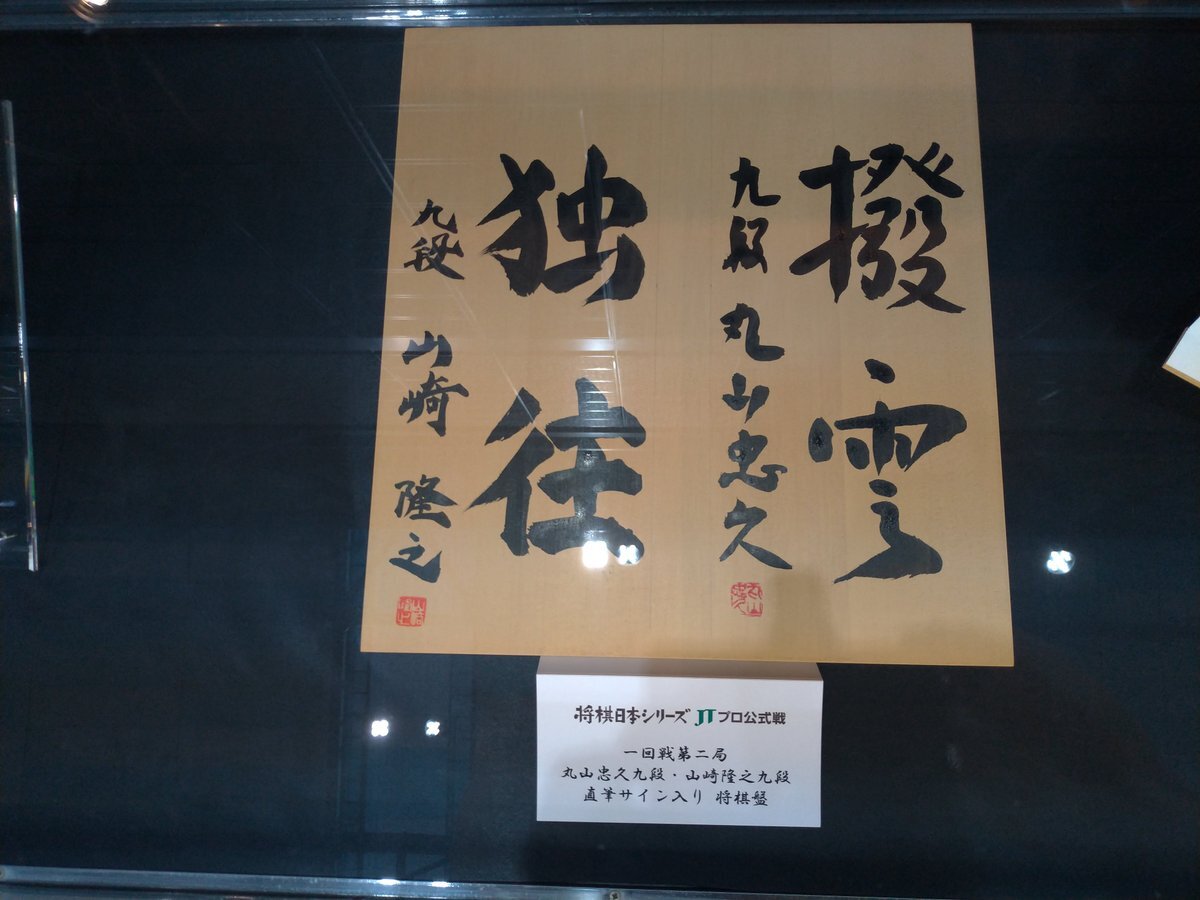 撥雲
九段 丸山忠久
独往
九段 山崎 隆之
将棋日本シリーズ JTプロ公式戦
一回戦第二局
丸山忠久九段・山崎隆之九段
直筆サイン入り 将棋盤